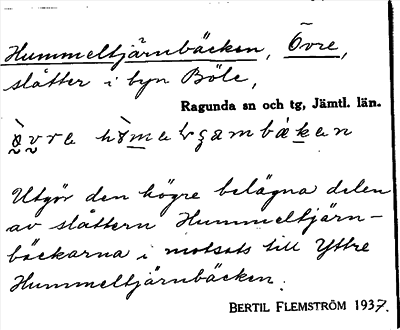 Hummeltjärnbäcken, Övre,
slåtter i byn Böle,
Ragunda sn och tg, Jämtl. län.
Utgör den högre belägna delen
av slåttern Hummeltjärn-
bäckarna i motsats till Yttre
Hummeltjärnbäcken.
BERTIL FLEMSTRÖM 1937.